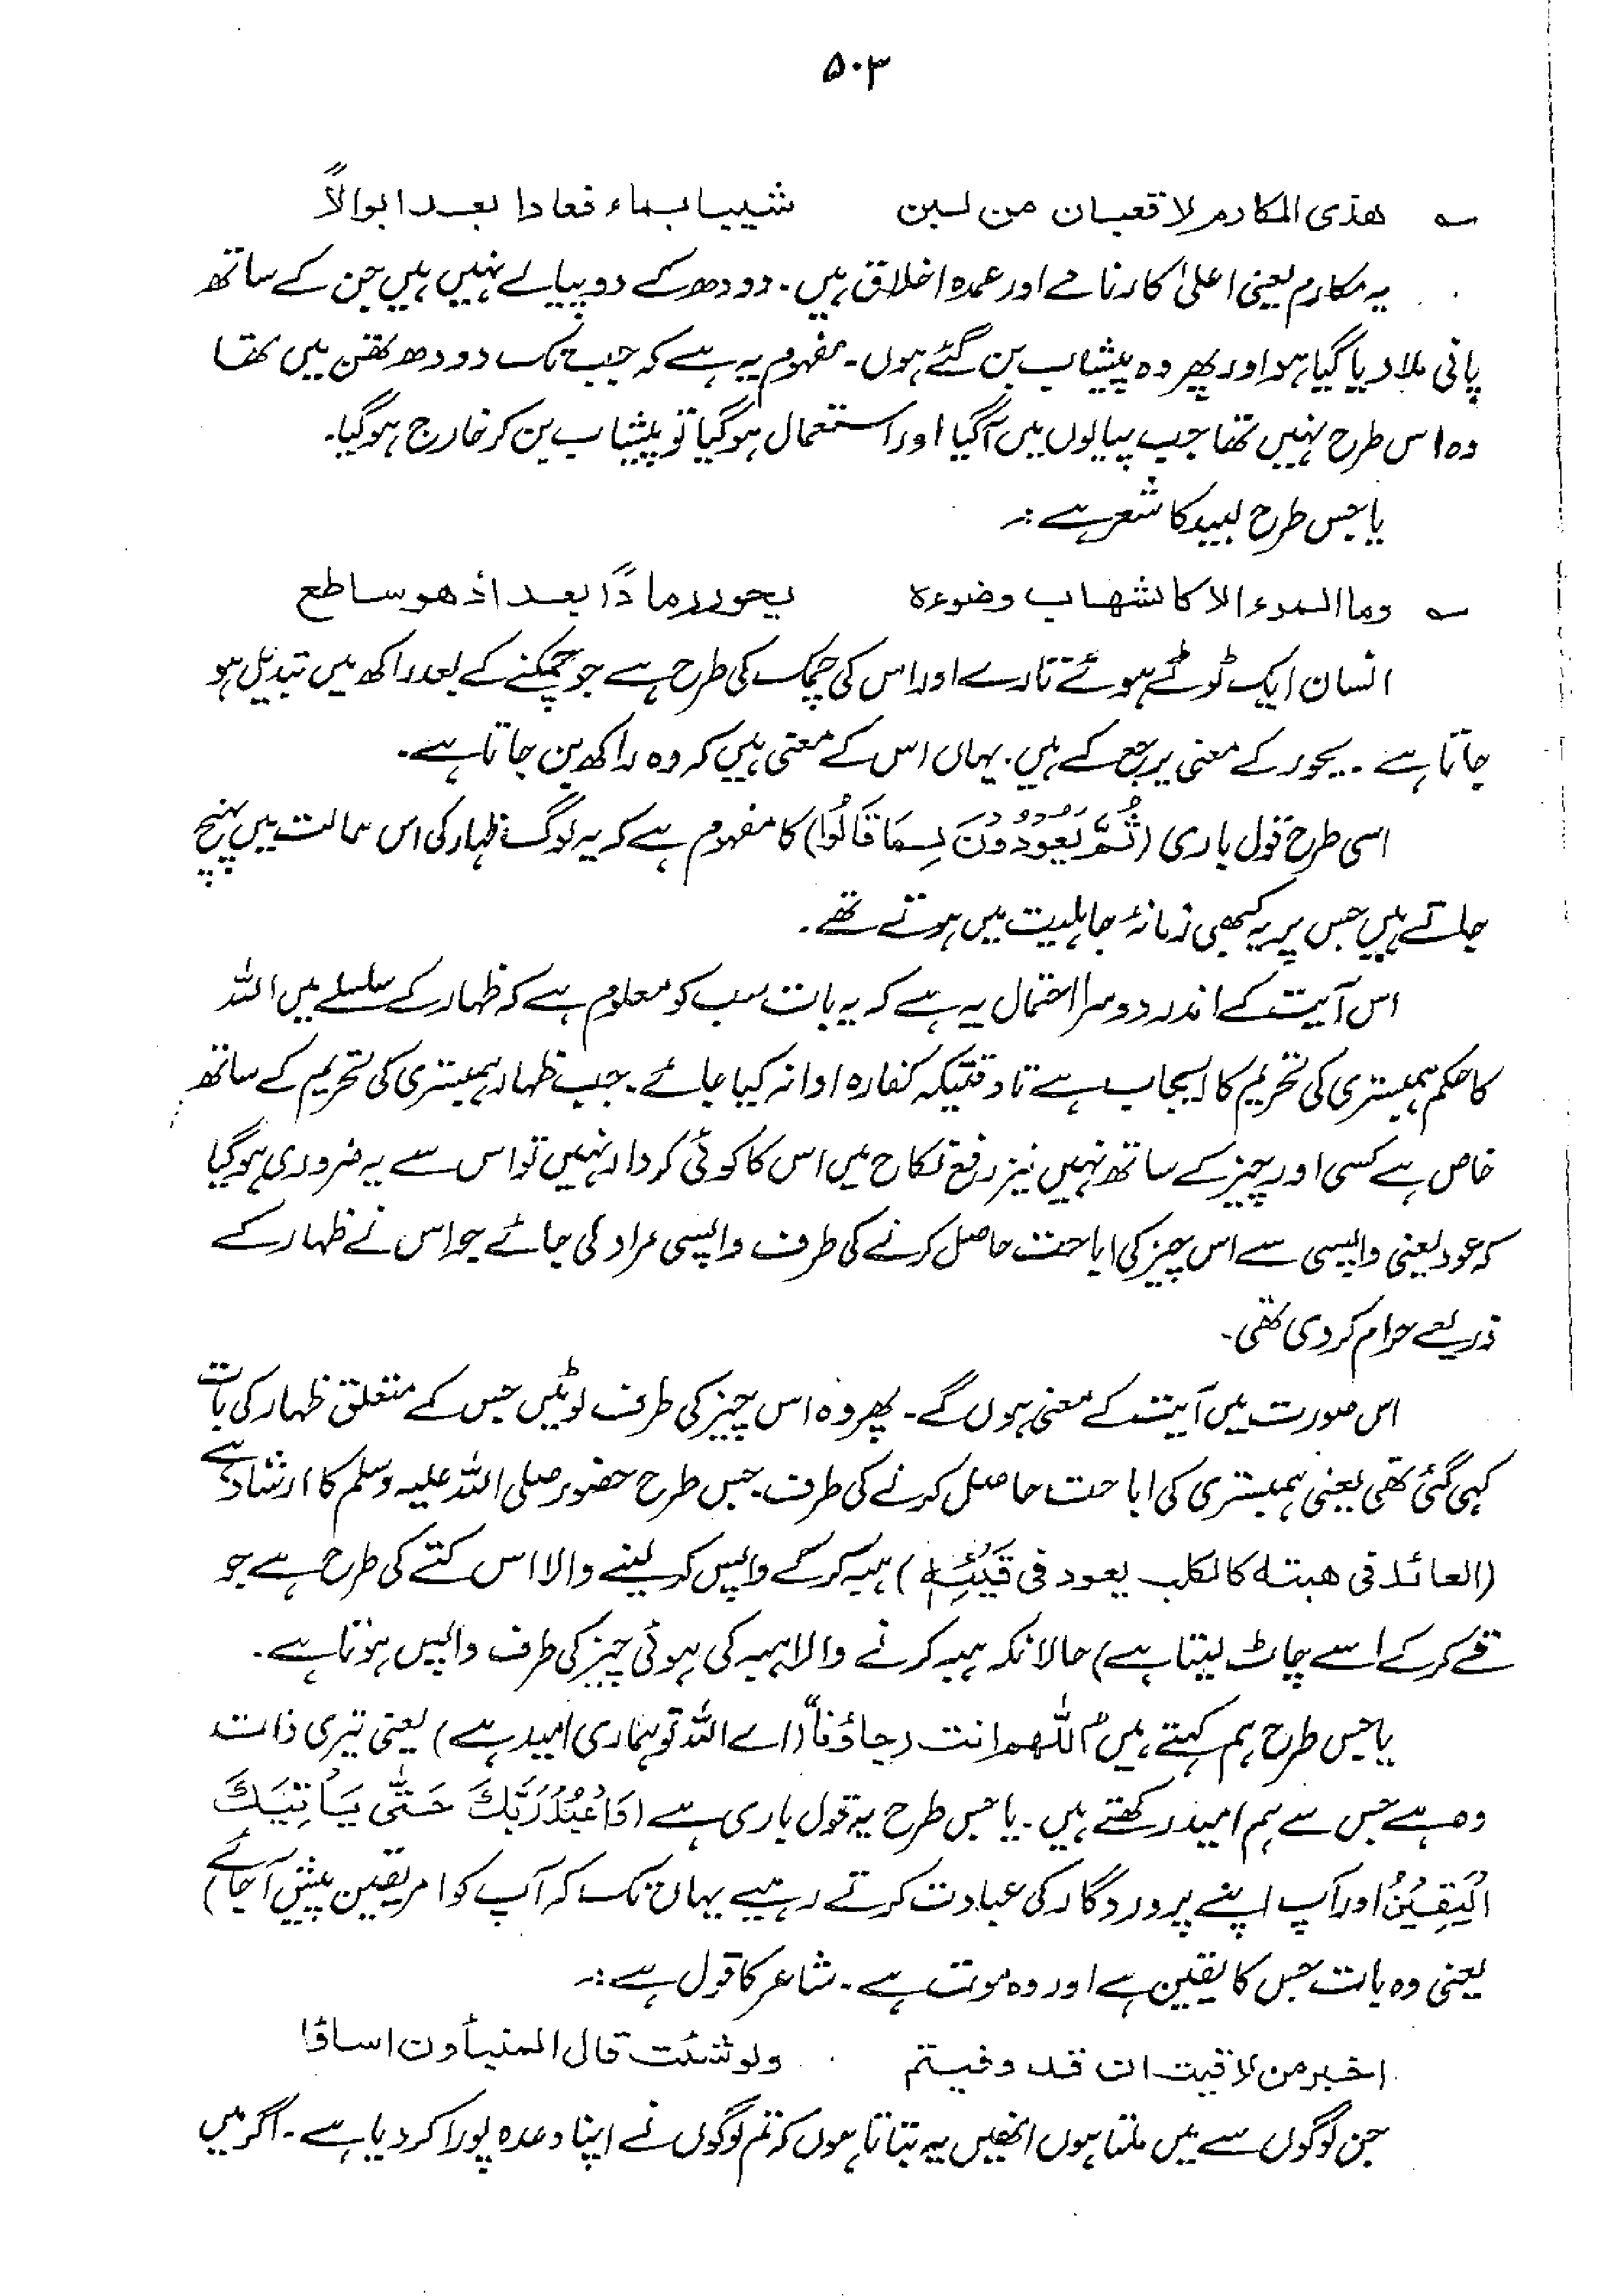 ۵۰۳
؎ ھذی المکارم لا قعبان من لبن شیبا بماء فعادا بعد ابوالاً
یہ مکارم یعنی اعلیٰ کارنامے اور عمدہ اخلاق ہیں۔ دودھ کے دو پیالے نہیں ہیں جن کے ساتھ
پانی ملا دیا گیا ہو اور پھر وہ پیشاب بن گئے ہوں۔ مفہوم یہ ہے کہ جب تک دودھ تھن میں تھا
وہ اس طرح نہیں تھا جب پیالوں میں آگیا اور استعمال ہوگیا تو پیشاب بن کر خارج ہوگیا۔
یا جس طرح لبید کا شعر ہے :۔
؎ وما المرء الا کالشھاب وضوءہ یحور رماداً بعد اذ ھو ساطع
انسان ایک ٹوٹے ہوئے تارے اور اس کی چمک کی طرح ہے جو چمکنے کے بعد راکھ میں تبدیل ہو
جاتا ہے ۔ یحور کے معنی یرجع کے ہیں۔ یہاں اس کے معنی ہیں کہ وہ راکھ بن جاتا ہے۔
اسی طرح قول باری (ثُمَّ یَعُوْدُوْنَ لِمَا قَالُوْا) کا مفہوم ہے کہ یہ لوگ ظہار کی اس حالت میں پہنچ
جاتے ہیں جس پر یہ کبھی زمانۂ جاہلیت میں ہوتے تھے۔
اس آیت کے اندر دوسرا احتمال یہ ہے کہ یہ بات سب کو معلوم ہے کہ ظہار کے سلسلے میں اللہ
کا حکم ہمبستری کی تحریم کا ایجاب ہے تا وقتیکہ کفارہ ادا نہ کیا جائے۔ جب ظہار ہمبستری کی تحریم کے ساتھ
خاص ہے کسی اور چیز کے ساتھ نہیں نیز رفع نکاح میں اس کا کوئی کردار نہیں تو اس سے یہ ضروری ہوگیا
کہ عود یعنی واپسی سے اس چیز کی اباحت حاصل کرنے کی طرف واپسی مراد لی جائے جو اس نے ظہار کے
ذریعے حرام کر دی تھی۔
اس صورت میں آیت کے معنی ہوں گے۔ پھر وہ اس چیز کی طرف لوٹیں جس کے متعلق ظہار کی بات
کہی گئی تھی یعنی ہمبستری کی اباحت حاصل کرنے کی طرف۔ جس طرح حضور صلی اللہ علیہ وسلم کا ارشاد ہے
(العائد فی ھبتہ کالکلب یعود فی قَیْئِہٖ) ہبہ کر کے واپس کر لینے والا اس کتے کی طرح ہے جو
قے کر کے اسے چاٹ لیتا ہے) حالانکہ ہبہ کرنے والا ہبہ کی ہوئی چیز کی طرف واپس ہوتا ہے۔
یا جس طرح ہم کہتے ہیں "اللھم انت رجاؤنا" (اے اللہ تو ہماری امید ہے) یعنی تیری ذات
وہ ہے جس سے ہم امید رکھتے ہیں۔ یا جس طرح یہ قول باری ہے (وَاعْبُدْ رَبَّکَ حَتّٰی یَأْتِیَکَ
الْیَقِیْنُ اور آپ اپنے پروردگار کی عبادت کرتے رہیے یہاں تک کہ آپ کو امر یقین پیش آجائے)
یعنی وہ بات جس کا یقین ہے اور وہ موت ہے۔ شاعر کا قول ہے :۔
اخبر من لاقیت ان قد وفیتم ولو شئت قال المنبأون اساؤا
جن لوگوں سے میں ملتا ہوں انھیں یہ بتاتا ہوں کہ تم لوگوں نے اپنا وعدہ پورا کر دیا ہے۔ اگر میں